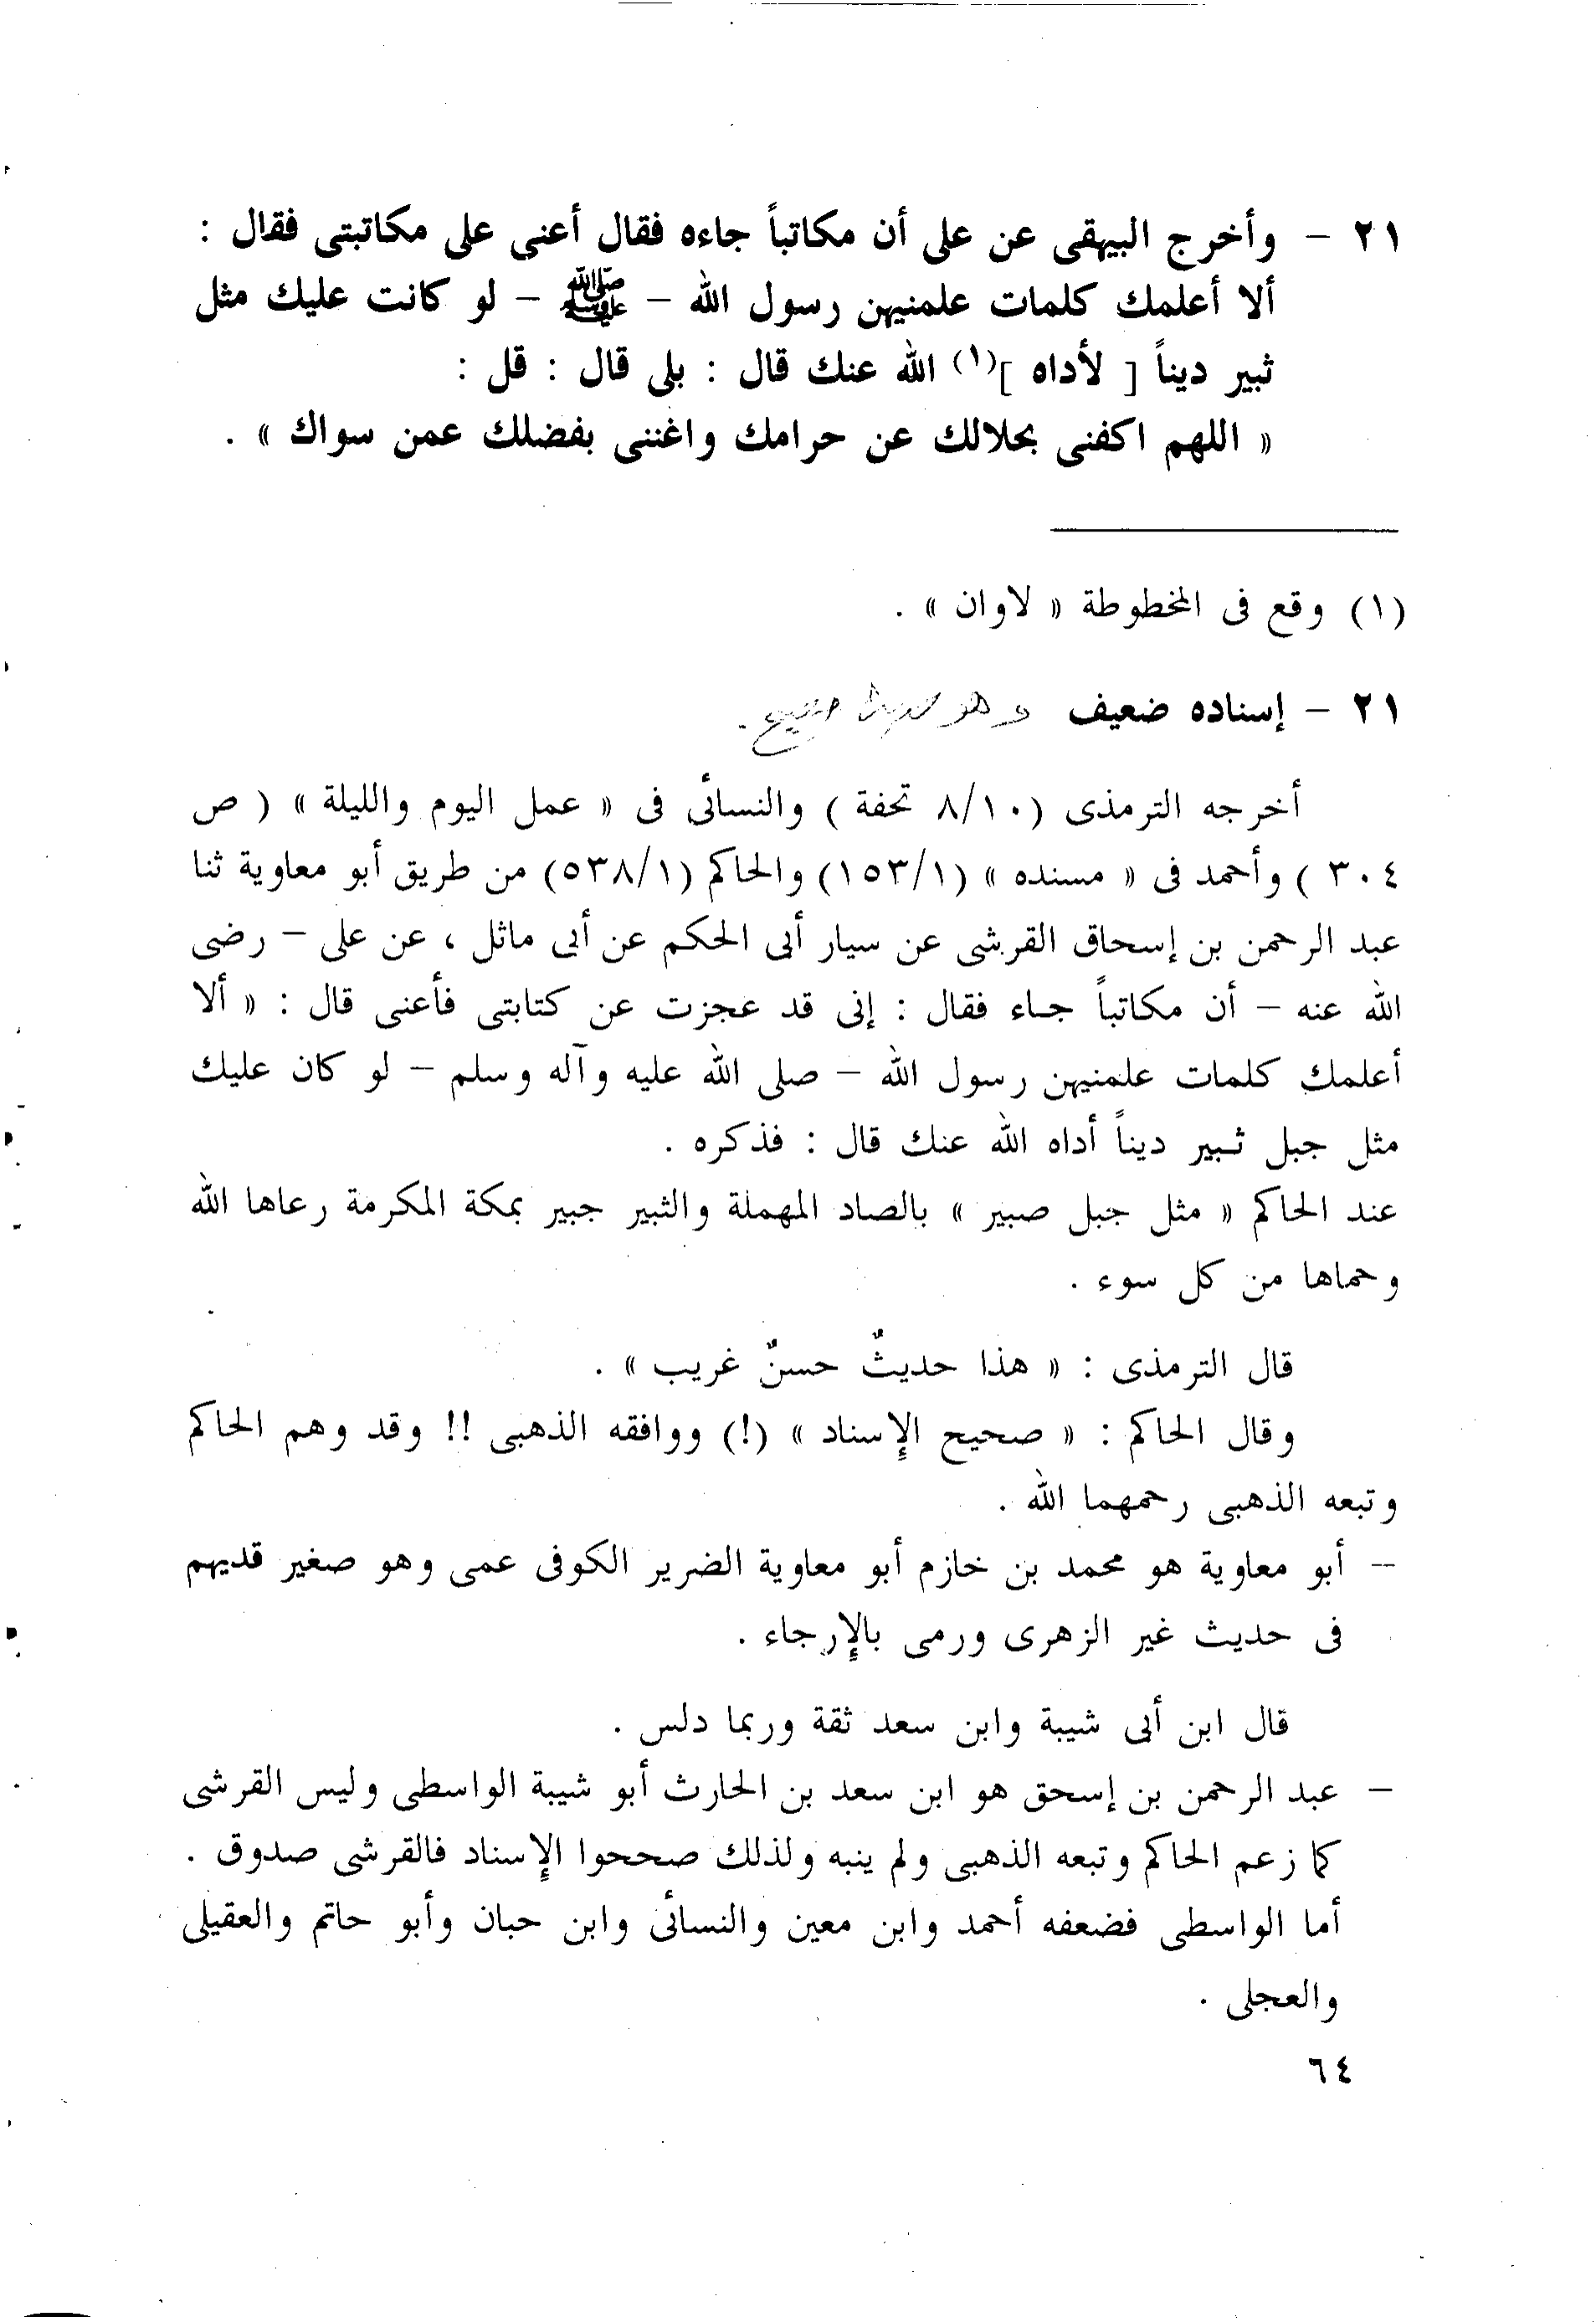 ٢١ – وأخرج البيهقى عن على أن مكاتباً جاءه فقال أعنى على مكاتبتى فقال :
ألا أعلمك كلمات علمنيهن رسول الله – ﷺ – لو كانت عليك مثل
ثبير ديناً [ لأداه ](١) الله عنك قال : بلى قال : قل :
« اللهم اكفنى بحلالك عن حرامك واغننى بفضلك عمن سواك » .
(١) وقع فى المخطوطة « لاوان » .
٢١ – إسناده ضعيف وهو حديث صحيح .
أخرجه الترمذى (٨/١٠ تحفة ) والنسائى فى « عمل اليوم والليلة » ( ص
٣٠٤ ) وأحمد فى « مسنده » (١٥٣/١) والحاكم (٥٣٨/١) من طريق أبو معاوية ثنا
عبد الرحمن بن إسحاق القرشى عن سيار أبى الحكم عن أبى ماثل ، عن على – رضى
الله عنه – أن مكاتباً جاء فقال : إنى قد عجزت عن كتابتى فأعنى قال : « ألا
أعلمك كلمات علمنيهن رسول الله – صلى الله عليه وآله وسلم – لو كان عليك
مثل جبل ثبير ديناً أداه الله عنك قال : فذكره .
عند الحاكم « مثل جبل صبير » بالصاد المهملة والثبير جبير بمكة المكرمة رعاها الله
وحماها من كل سوء .
قال الترمذى : « هذا حديثٌ حسنٌ غريب » .
وقال الحاكم : « صحيح الإسناد » (!) ووافقه الذهبى !! وقد وهم الحاكم
وتبعه الذهبى رحمهما الله .
– أبو معاوية هو محمد بن خازم أبو معاوية الضرير الكوفى عمى وهو صغير قديهم
فى حديث غير الزهرى ورمى بالإرجاء .
قال ابن أبى شيبة وابن سعد ثقة وربما دلس .
– عبد الرحمن بن إسحق هو ابن سعد بن الحارث أبو شيبة الواسطى وليس القرشى
كما زعم الحاكم وتبعه الذهبى ولم ينبه ولذلك صححوا الإسناد فالقرشى صدوق .
أما الواسطى فضعفه أحمد وابن معين والنسائى وابن حبان وأبو حاتم والعقيلى
والعجلى .
٦٤